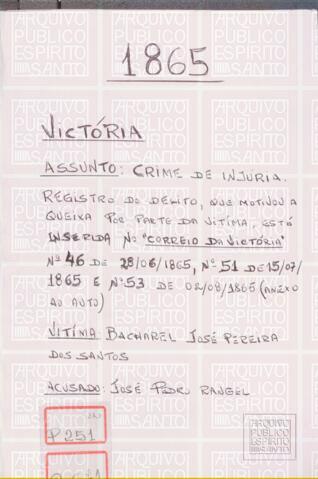 1865
VICTÓRIA
ASSUNTO: CRIME DE INJURIA.
REGISTRO DO DELITO, QUE MOTIVOU A
QUEIXA POR PARTE DA VITÍMA, ESTÁ
INSERIDA NO "CORREIO DA VICTÓRIA"
Nº 46 DE 28/06/1865, Nº 51 DE 15/07/
1865 E Nº 53 DE 02/08/1865 (ANEXO
AO AUTO)
VITÍMA: BACHAREL JOSÉ PEREIRA
DOS SANTOS
ACUSADO: JOSÉ PEDRO RANGEL
P251
ARQUIVO
PÚBLICO
ESPÍRITO
SANTO